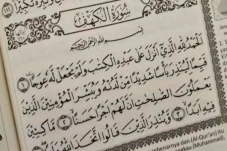 سُورَةُ الْكَهْفِ
بِسْمِ اللَّهِ الرَّحْمَٰنِ الرَّحِيمِ
الْحَمْدُ لِلَّهِ الَّذِي أَنْزَلَ عَلَىٰ عَبْدِهِ الْكِتَٰبَ وَلَمْ يَجْعَلْ لَهُ عِوَجًا ۝١
قَيِّمًا لِيُنْذِرَ بَأْسًا شَدِيدًا مِنْ لَدُنْهُ وَيُبَشِّرَ الْمُؤْمِنِينَ الَّذِينَ
يَعْمَلُونَ الصَّٰلِحَٰتِ أَنَّ لَهُمْ أَجْرًا حَسَنًا ۝٢ مَاكِثِينَ
فِيهِ أَبَدًا ۝٣ وَيُنْذِرَ الَّذِينَ قَالُوا اتَّخَذَ اللَّهُ
(Al-Qur'an) itu
(Muhammad)